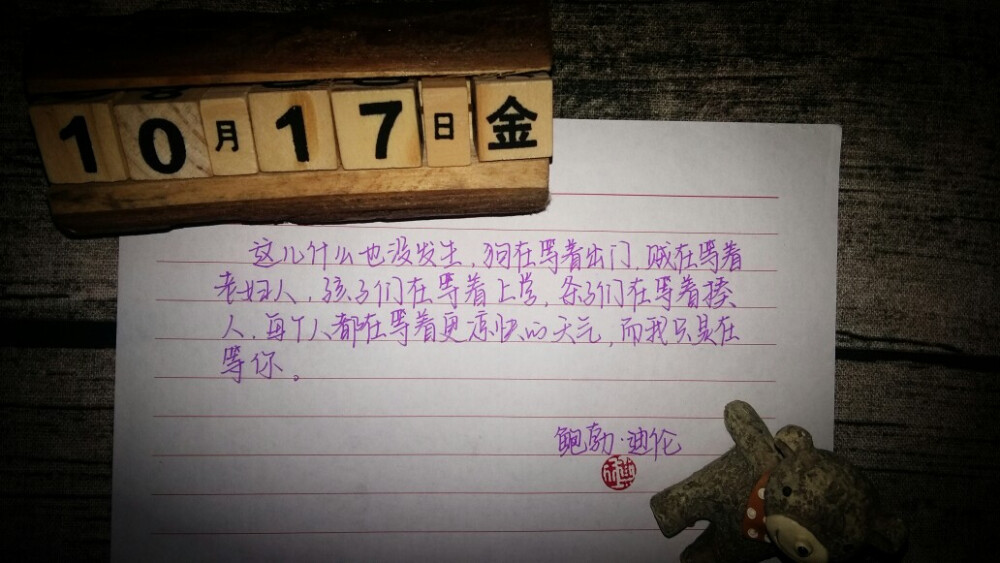 10月17日 金
这儿什么也没发生,狗在等着出门,贼在等着
老妇人,孩子们在等着上学,条子们在等着揍
人,每个人都在等着更凉快的天气,而我只是在
等你。
鲍勃·迪伦